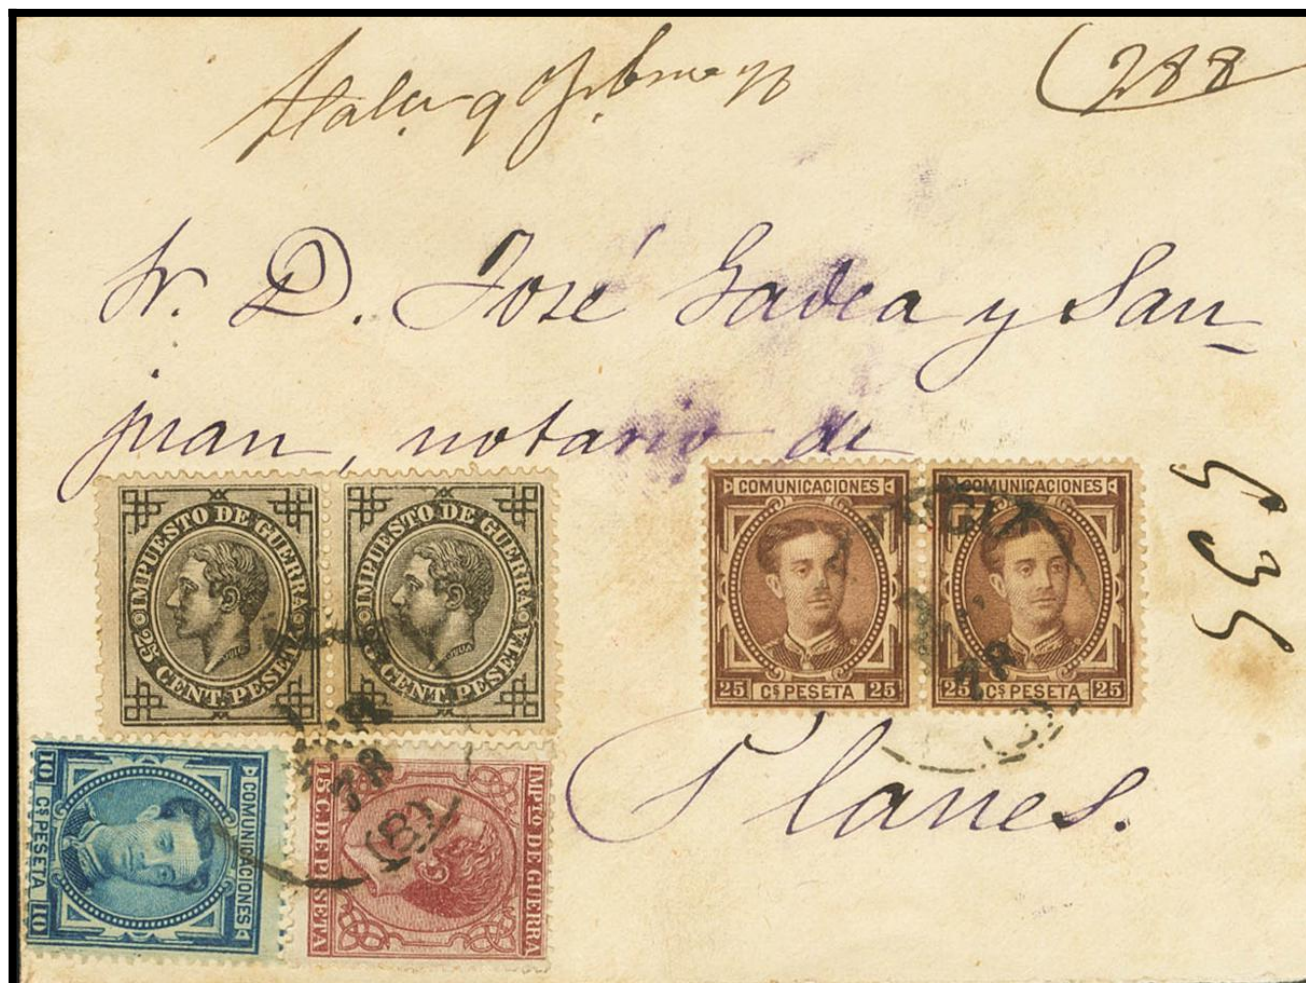 288
Sr. D. José Gadea y San-
juan, notario de
Planes.
IMPUESTO DE GUERRA
25 CENT. PESETA
JULIA
IMPUESTO DE GUERRA
25 CENT. PESETA
JULIA
COMUNICACIONES
25 Cs PESETA 25
COMUNICACIONES
25 Cs PESETA 25
COMUNICACIONES
10 Cs PESETA 10
IMPTO DE GUERRA
15 C. DE PESETA
78
(8)
78